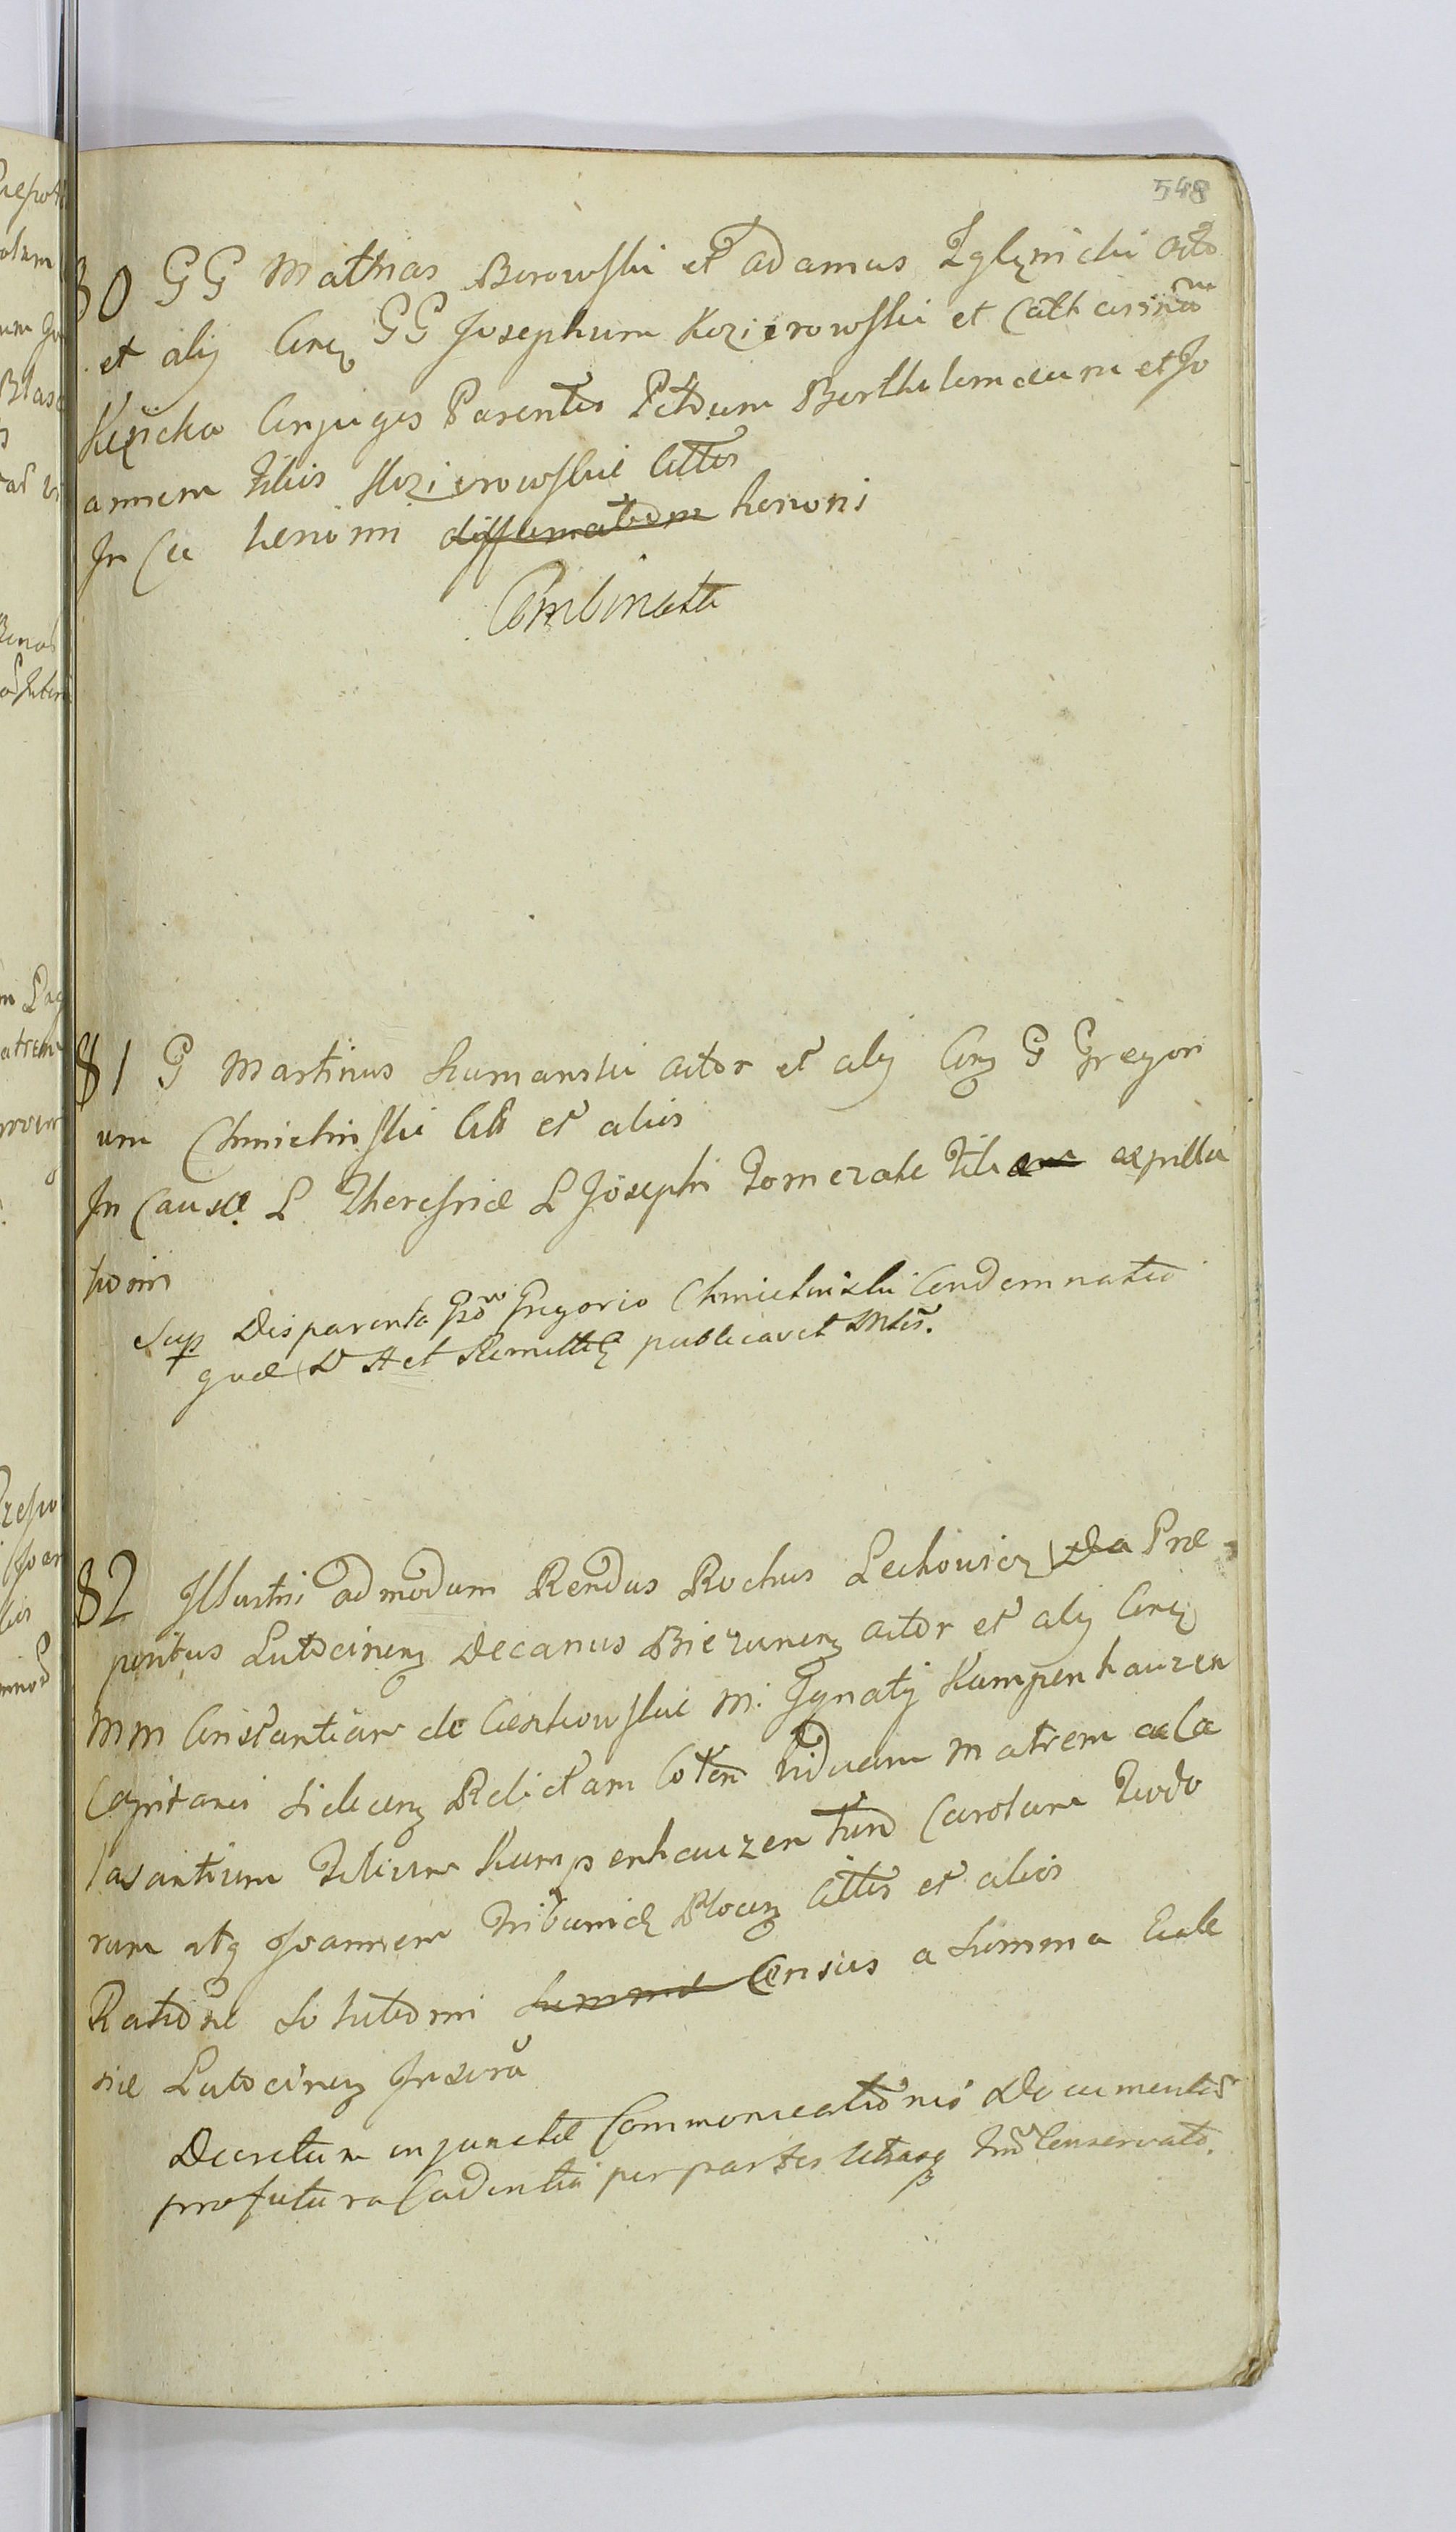 548
80 GG Mathias Borowski et Adamus Zglenicki acto
et alij Conq GG Josephum Kozierowski et Catharinam
Kęsicka Conjuges Parentes Petrum Bartholomaeum et Jo
annem Filios Kozierowskie Cittos
In Ca honori diffamatom honori
Combinata
81 G Martinus Humanski actor et alij Conq G Gregori
um Chmielinski Citt et alios
In Causa L Theresiae L Josephi
Sup Disparentia Gso Gregorio Chmielinski Condemnatio
quae et Remittẽ publicavit Mltis.
82 Illustris admodum Rendus Rochus Lechowicz Prae
positus Lutocinens Decanus Biezunens actor et alij Conq
MM Constantiam de M. Ignatij Kampenhauzen
Capitanei Relictam Viduam Matrem ac Ca
lasantium Filium Kampenhauzen tum Carolum Teodo
rum atq Joannem Tribunidẽ Plocens Cittos et alios
Ratione Solutionni Summa Census a Summa Eccle
siae Lutocinens
Decretum injunctae Communicationis Documentor
pro futura Cadentia per partes utrasq Conservato.